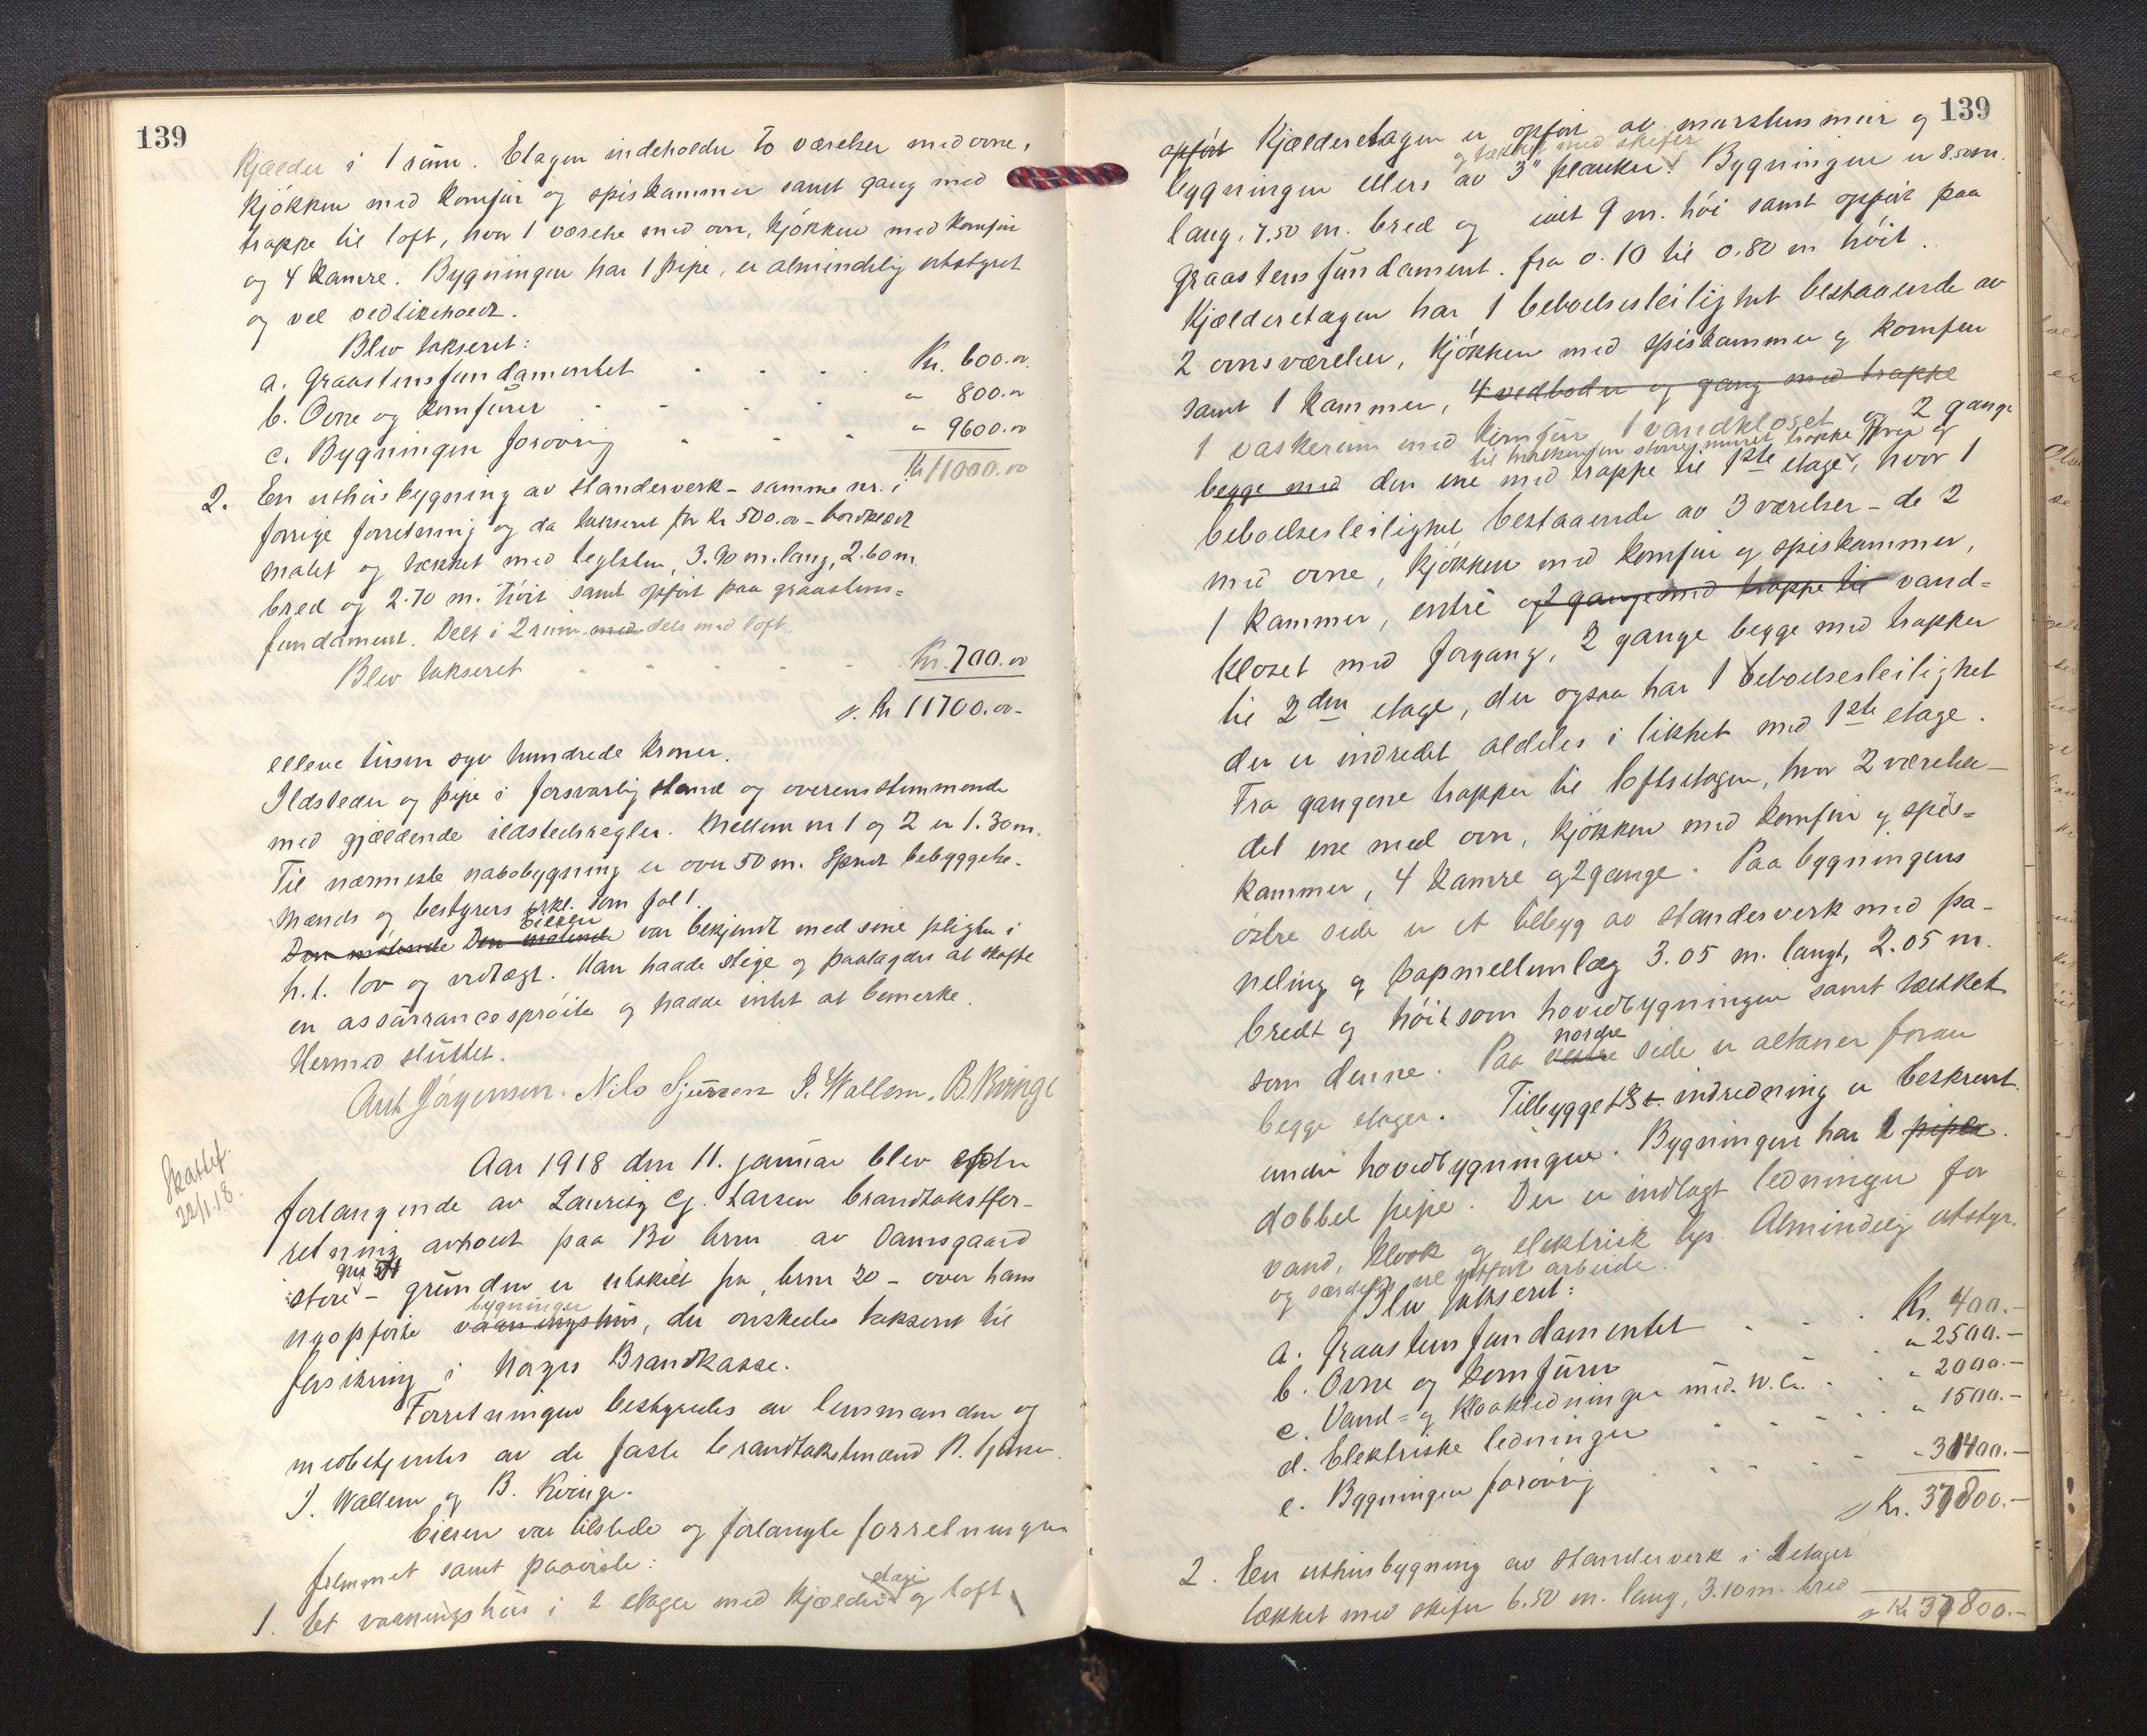 139
Kjælder i 1 rum. Etagen indeholder to værelser med ovne,
kjøkken med komfur og spiskammer samt gang med
trappe til loft, hvor 1 værelse med ovn, kjøkken med komfur
og 4 kamre. Bygningen har 1 pipe, er almindelig utstyret
og vel vedlikeholdt.
Blev takseret:
a. Graastensfundamentet . . . . Kr. 600.00
b. Ovne og komfurer . . . . " 800.00
c. Bygningen forøvrig . . . " 9600.00
Kr 11000.00
2. En uthusbygning av standerverk - samme nr. i
forrige forretning og da takseret for kr 500.00 - bordklædt
malet og tækket med teglsten, 3.90 m. lang, 2.60 m.
bred og 2.70 m. høi samt opført paa graastens=
fundament. Delt i 2 rum med dels med loft.
Blev takseret . . . . Kr. 700.00
s. Kr 11700.00-
elleve tusen syv hundrede kroner.
Ildsteder og pipe i forsvarlig stand og overensstemmende
med gjældende ildstedsregler. Mellem nr 1 og 2 er 1.30 m.
Til nærmeste nabobygning er over 50 m. Spredt bebyggelse.
Mænds og bestyrers erkl. som fol 1.
Eieren
Den møtende Den møtende var bekjendt med sine pligter i
h.t. lov og vedtægt. Han hadde stige og paalagdes at skaffe
en assurancesprøite og hadde intet at bemerke.
Hermed sluttet.
Ant Jørgensen. Nils Sjursen J. Wallem. B. Kvinge
Skattef.
22/1.18.
Aar 1918 den 11. januar blev efter
forlangende av Lauritz Cg. Larsen brandtakstfor-
retning avholdt paa Bv brnr av Damsgaard
gnr 54
store - grunden er utskilt fra brnr 20 - over hans
bygninger
nyopførte vaaningshus, der ønskedes takseret til
forsikring i Norges Brandkasse.
Forretningen bestyredes av lensmanden og
medbetjentes av de faste brandtakstmænd N. Sjursen
J. Wallem og B. Kvinge.
Eieren var tilstede og forlangte forretningen
fremmet samt paaviste:
etage
1. Et vaaningshus i 2 etager med kjælder og loft
139
opført Kjælderetagen er opført av murstensmur og
og tækket med skifer
bygningen ellers av 3" planker. Bygningen er 8.50 m.
lang, 7.50 m. bred og 9 m. høi samt opført paa
graastensfundament. fra 0.10 til 0.80 m høit.
Kjælderetagen har 1 beboelsesleilighet bestaaende av
2 ovnsværelser, kjøkken med spiskammer og komfur
samt 1 kammer, 4 vedboder og gang med trappe
1 vaskerum med komfur 1 vandkloset og 2 gange
begge med den ene med trappe til 1ste etage, hvor 1
beboelsesleilighet bestaaende av 3 værelser - de 2
med ovne, kjøkken med komfur og spiskammer,
1 kammer, entré og 2 gange med trappe til vand=
kloset med forgang, 2 gange begge med trapper
til 2den etage, der ogsaa har 1 beboelsesleilighet
der er indredet aldeles i likhet med 1ste etage.
Fra gangene trapper til loftsetagen, hvor 2 værelser -
det ene med ovn, kjøkken med komfur og spis=
kammer, 4 kamre og 2 gange. Paa bygningens
østre side er et tilbygg av standerverk med pa-
neling og papmellemlæg 3.05 m. langt, 2.05 m.
bredt og høit som hovedbygningen samt tækket
nordre
som denne. Paa vestre side er altaner foran
begge etager. Tilbyggets indredning er beskrevet
under hovedbygningen. Bygningen har 1 piper
dobbel pipe. Der er indlagt ledninger for
vand, kloak og elektrisk lys. Almindelig utstyr.
og særdeles vel utført arbeide.
Blev takseret:
a. Graastensfundamentet . . . Kr. 400.-
b. Ovne og komfurer . " 2500.-
c. Vand= og kloakledninger med W.C. . " 2000.-
d. Elektriske ledninger . . . " 1500.-
e. Bygningen forøvrig . . . " 31400.-
s Kr. 37800.-
2. En uthusbygning av standerverk i 2 etager
tækket med skifer 6.50 m. lang, 3.10 m. bred
s Kr 37800.-